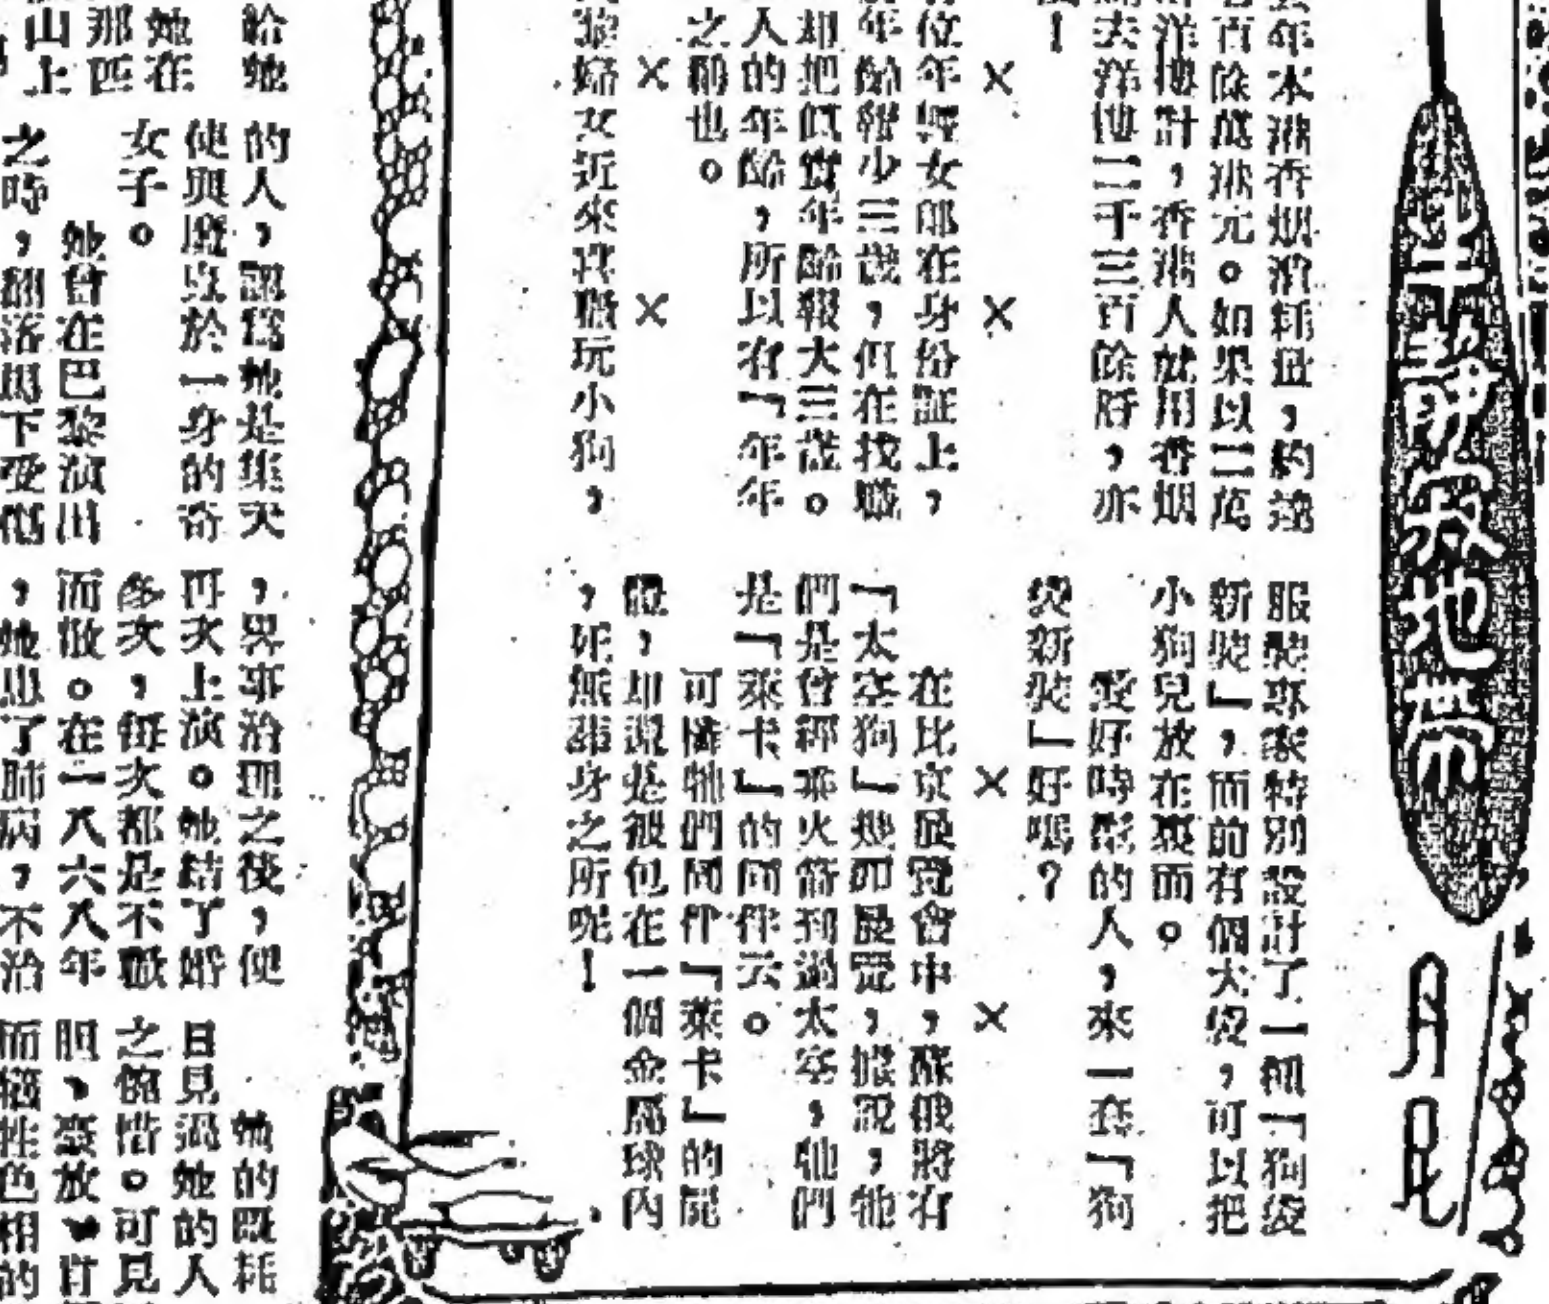 半靜寂地帶
年本港香烟消耗量，約達
百餘萬港元。如果以二萬
洋樓計，香港人就用香烟
去洋樓二千三百餘所，亦
！
× ×
位年輕女郎在身份証上，
年齡報少三歲，但在找職
却把真實年齡報大三歲。
人的年齡，所以有「年年
之稱也。
× ×
黎婦女近來玩小狗，
服裝專家特別設計了一種「狗袋
新裝」，而前有個大袋，可以把
小狗兒放在裏面。
愛好時髦的人，來一套「狗
袋新裝」好嗎？
× ×
在比京展覽會中，蘇俄將有
「太空狗」幾頭展覽，據說，牠
們是曾經乘火箭到過太空，牠們
是「萊卡」的同伴云。
可憐牠們同伴「萊卡」的屍
體，却還是被包在一個金屬球內
，死無葬身之所呢！
給她
她在
那匹
山上
的人，認爲她是集天
使與魔鬼於一身的奇
女子。
她曾在巴黎演出
之時，翻落馬下受傷
，畧事治理之後，便
再次上演。她結了婚
多次，每次都是不歡
而散。在一八六八年
，她患了肺病，不治
她的
目見過她的人
之惋惜。可見
胆、豪放、
而犧牲色相的